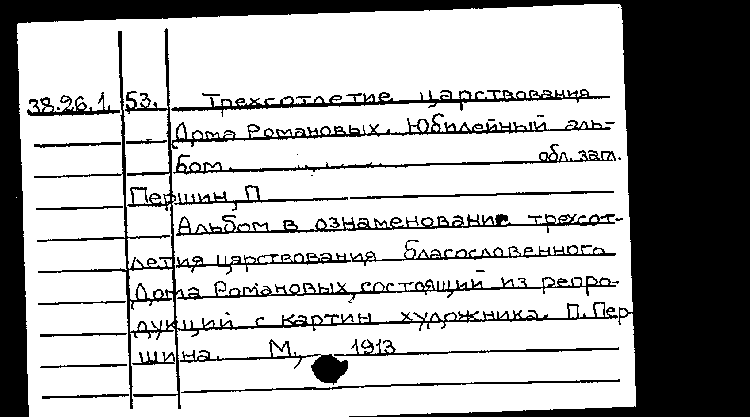 38.26.1. 53. Трехсотлетие царствования
Дома Романовых. Юбилейный аль-
бом. обл. загл.
Першин, П
Альбом в ознаменование трехсот-
летия царствования благословенного
Дома Романовых, состоящий из репро-
дукций с картин художника. П. Пер-
шина. М., 1913